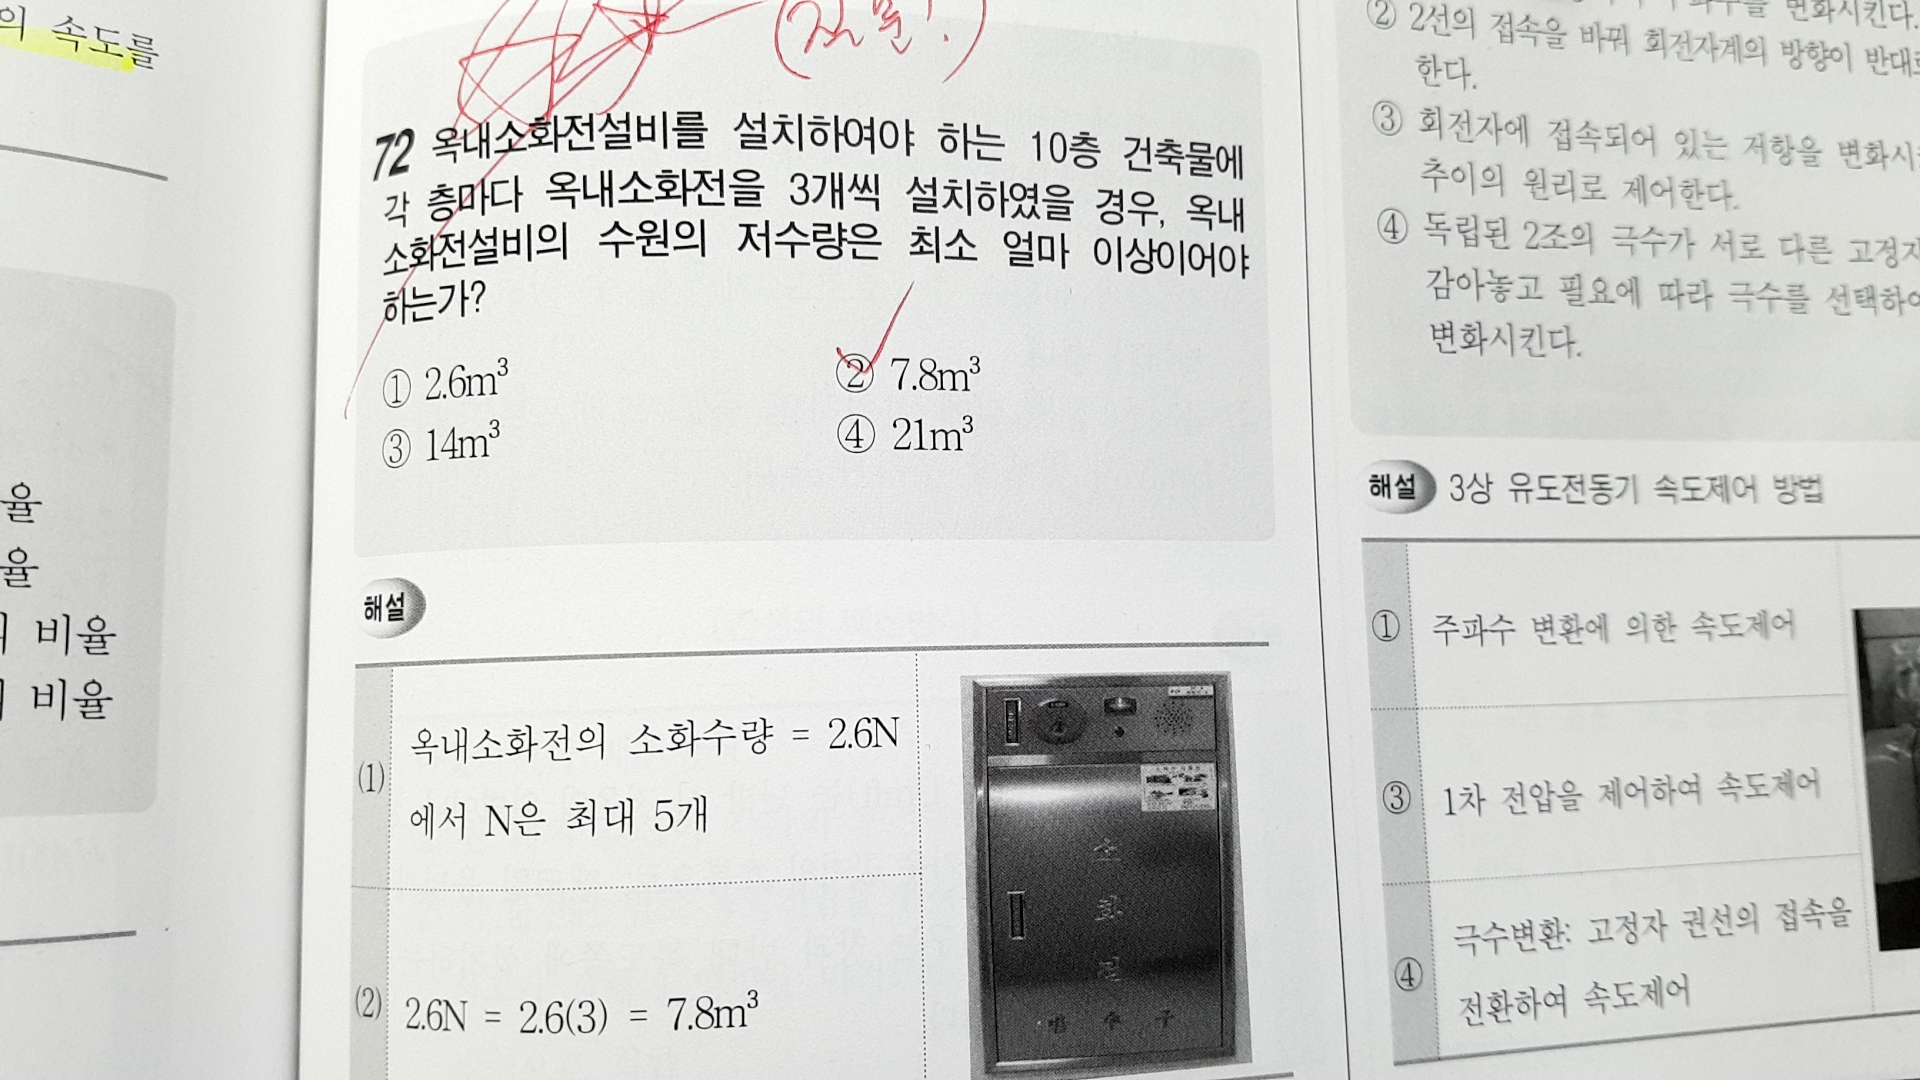 의 속도를
율
율
비율
비율
(전물!)
72 옥내소화전설비를 설치하여야 하는 10층 건축물에
각 층마다 옥내소화전을 3개씩 설치하였을 경우, 옥내
소화전설비의 수원의 저수량은 최소 얼마 이상이어야
하는가?
① 2.6m³
② 7.8m³
③ 14m³
④ 21m³
해설
(1) 옥내소화전의 소화수량 = 2.6N
에서 N은 최대 5개
(2) 2.6N = 2.6(3) = 7.8m³
소
화
전
변화시킨다.
② 2선의 접속을 바꿔 회전자계의 방향이 반대로
한다.
③ 회전자에 접속되어 있는 저항을 변화시켜
추이의 원리로 제어한다.
④ 독립된 2조의 극수가 서로 다른 고정자
감아놓고 필요에 따라 극수를 선택하여
변화시킨다.
해설 3상 유도전동기 속도제어 방법
① 주파수 변환에 의한 속도제어
③ 1차 전압을 제어하여 속도제어
④ 극수변환: 고정자 권선의 접속을
전환하여 속도제어